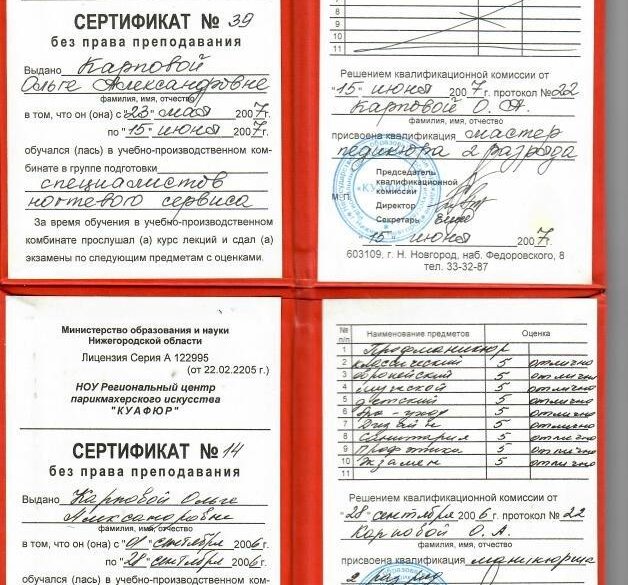 СЕРТИФИКАТ № 39
без права преподавания
Выдано Карповой
Ольге Александровне
фамилия, имя, отчество
в том, что он (она) с "23" мая 2007 г.
по "15" июня 2007 г.
обучался (лась) в учебно-производственном ком-
бинате в группе подготовки
специалистов
ногтевого сервиса
За время обучения в учебно-производственном
комбинате прослушал (а) курс лекций и сдал (а)
экзамены по следующим предметам с оценками.
8
9
10
11
Решением квалификационной комиссии от
"15" июня 2007 г. протокол № 22
Карповой О. А.
фамилия, имя, отчество
присвоена квалификация мастер
педикюра 2 разряда
Председатель
квалификационной
комиссии
М.П.
Директор
Секретарь
15 июня 2007
603109, г. Н. Новгород, наб. Федоровского, 8
тел. 33-32-87
Министерство образования и науки
Нижегородской области
Лицензия Серия А 122995
(от 22.02.2205 г.)
НОУ Региональный центр
парикмахерского искусства
"КУАФЮР"
СЕРТИФИКАТ № 14
без права преподавания
Выдано Карповой Ольге
Александровне
фамилия, имя, отчество
в том, что он (она) с "01" сентября 2006 г.
по "28" сентября 2006 г.
обучался (лась) в учебно-производственном ком-
№ п/п Наименование предметов Оценка
1 Профманикюр
2 классический 5 отлично
3 европейский 5 отлично
4 мужской 5 отлично
5 детский 5 отлично
6 5 отлично
7 Дизайн 5 отлично
8 Санитария 5 отлично
9 Профэтика 5 отлично
10 Экзамен 5 отлично
11
Решением квалификационной комиссии от
"28" сентября 2006 г. протокол № 22
Карповой О. А.
фамилия, имя, отчество
присвоена квалификация маникюрша
2 разряд